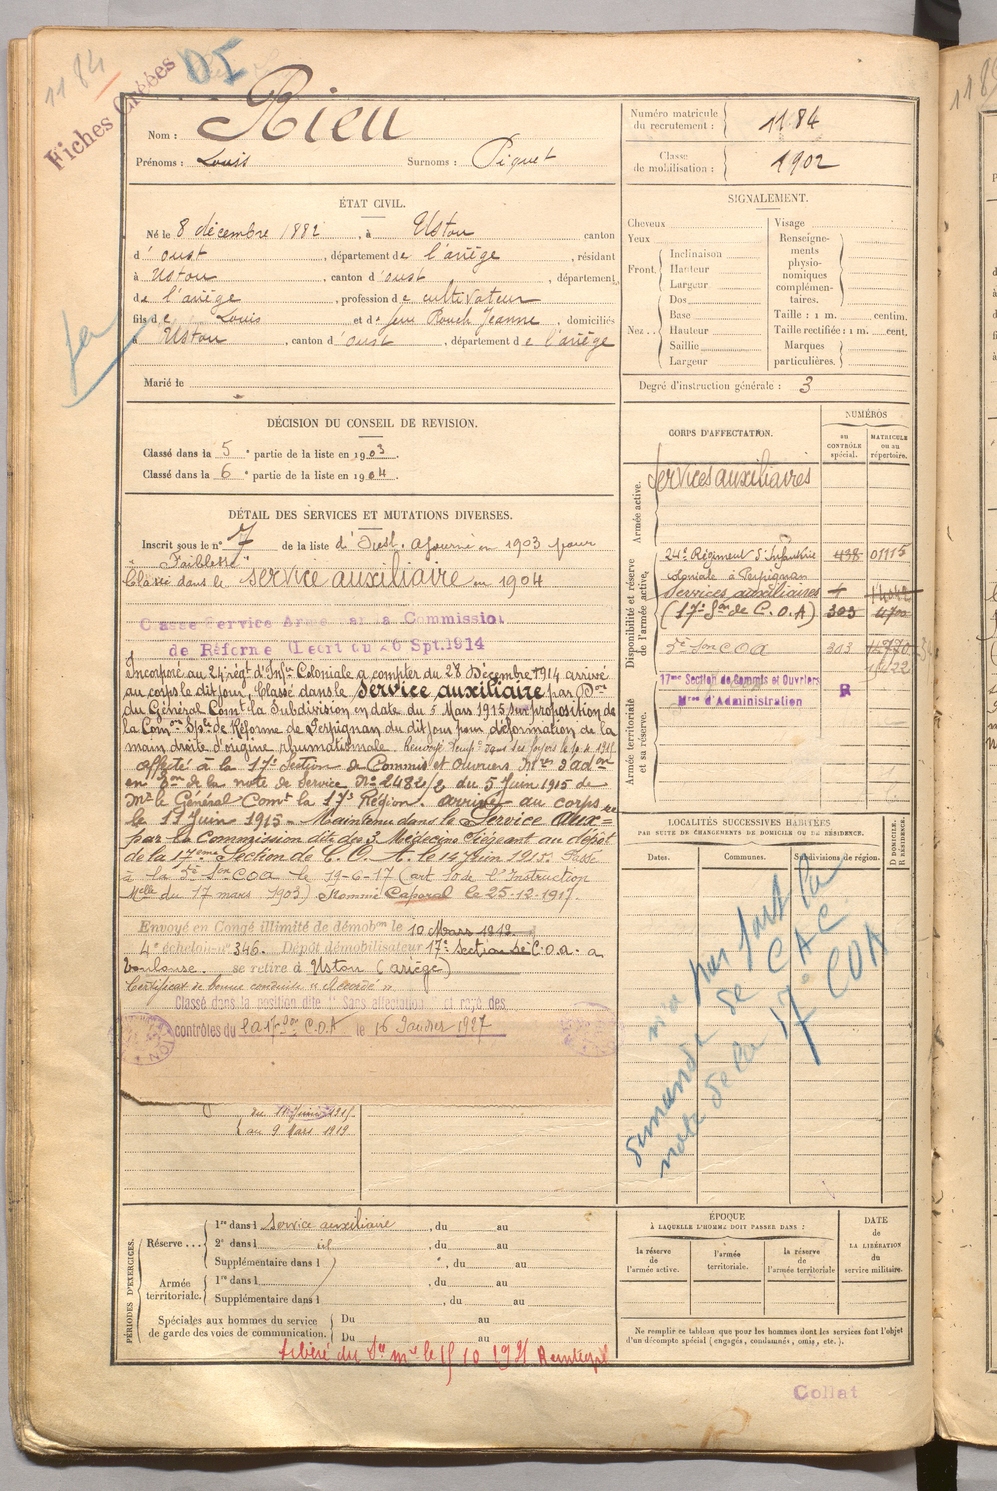 1184
DI
Fiches Créées
Nom : Rieu
Prénoms : Louis Surnoms : Piquet
Numéro matricule du recrutement : 1184
Classe de mobilisation : 1902
ÉTAT CIVIL.
Né le 8 décembre 1882, à Ustou canton
d' oust, département de l'ariège, résidant
à Ustou, canton d'oust, département
de l'ariège, profession de cultivateur
fils de Louis et de feue Rouch Jeanne, domiciliés
à Ustou, canton d'oust, département de l'ariège
Marié le
SIGNALEMENT.
Cheveux
Yeux
Front. Inclinaison
Hauteur
Largeur
Nez.. Dos
Base
Hauteur
Saillie
Largeur
Visage
Renseignements physionomiques complémentaires.
Taille : 1 m. centim.
Taille rectifiée : 1 m. cent.
Marques particulières.
Degré d'instruction générale : 3
DÉCISION DU CONSEIL DE REVISION.
Classé dans la 5e partie de la liste en 1903.
Classé dans la 6e partie de la liste en 1904.
DÉTAIL DES SERVICES ET MUTATIONS DIVERSES.
Inscrit sous le n° 7 de la liste d'Oust. Ajourné en 1903 pour
"Faiblesse"
Classé dans le service auxiliaire en 1904
Classé Service Armé par la Commission
de Réforme (Décrt du 26 Spt. 1914
Incorporé au 24e régt d'Infie Coloniale à compter du 28 Décembre 1914 arrivé
au corps le dit jour, Classé dans le Service auxiliaire par Don
du Général Comt la Subdivision en date du 5 Mars 1915 sur proposition de
la Comon Sple de Réforme de Perpignan du dit jour pour déformation de la
main droite d'origine rhumatismale.
affecté à la 17e Section de Commis et Ouvriers Mres d'adon
en Don de la note de Service No 2482/2 du 5 Juin 1915 de
Mr le Général Comt la 17e Région. arrivé au corps
le 11 Juin 1915. Maintenu dans le Service Auxre
par la Commission dite des 3 Médecins siégeant au dépôt
de la 17eme Section de C. O. A. le 14 Juin 1915. Passé
à la 2e Son COA le 19-6-17 (art 10 de l'Instruction
Melle du 17 mars 1903) Nommé Caporal le 25-12-1917.
Envoyé en Congé illimité de démobon le 10 Mars 1919.
4e échelon no 346. Dépôt démobilisateur 17e Section de C.O.A. à
Toulouse. se retire à Ustou (ariège)
Certificat de bonne conduite "Accordé"
Classé dans la position dite " Sans affectation " et rayé des
contrôles du la 17e Son C.O.A le 16 Janvier 1927
au 9 Mars 1919
CORPS D'AFFECTATION.
NUMÉROS
au CONTRÔLE spécial.
MATRICULE ou au répertoire.
Armée active.
Services auxiliaires
Disponibilité et réserve de l'armée active.
24e Régiment d'Infanterie 438 01115
coloniale à Perpignan
Services auxiliaires
(17e Son de C.O.A) 303 4700
2e Son COA 303
Armée territoriale et sa réserve.
17me Section de Commis et Ouvriers R
Mres d'Administration
LOCALITÉS SUCCESSIVES HABITÉES
PAR SUITE DE CHANGEMENTS DE DOMICILE OU DE RÉSIDENCE.
Dates.
Communes.
Subdivisions de région.
D DOMICILE. R RÉSIDENCE.
n'a pas fait la
demande de CAC
note de la 17e COA
PÉRIODES D'EXERCICES.
Réserve... 1re dans l service auxiliaire, du au
2e dans l, du au
Supplémentaire dans l, du au
Armée territoriale. 1re dans l, du au
Supplémentaire dans l, du au
Spéciales aux hommes du service de garde des voies de communication. Du au
Du au
ÉPOQUE
À LAQUELLE L'HOMME DOIT PASSER DANS :
la réserve de l'armée active.
l'armée territoriale.
la réserve de l'armée territoriale
DATE de LA LIBÉRATION du service militaire.
Ne remplir ce tableau que pour les hommes dont les services font l'objet
d'un décompte spécial (engagés, condamnés, omis, etc.).
Libéré du Sce mre le 15 10 1931
Collat